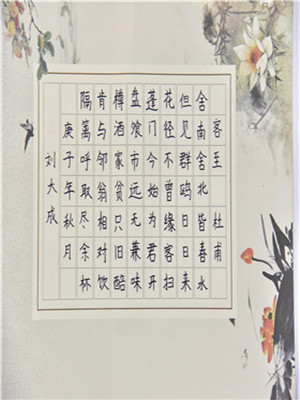 客至 杜甫
舍南舍北皆春水
但见群鸥日日来
花径不曾缘客扫
蓬门今始为君开
盘飧市远无兼味
樽酒家贫只旧醅
肯与邻翁相对饮
隔篱呼取尽余杯
庚子年秋月
刘大成